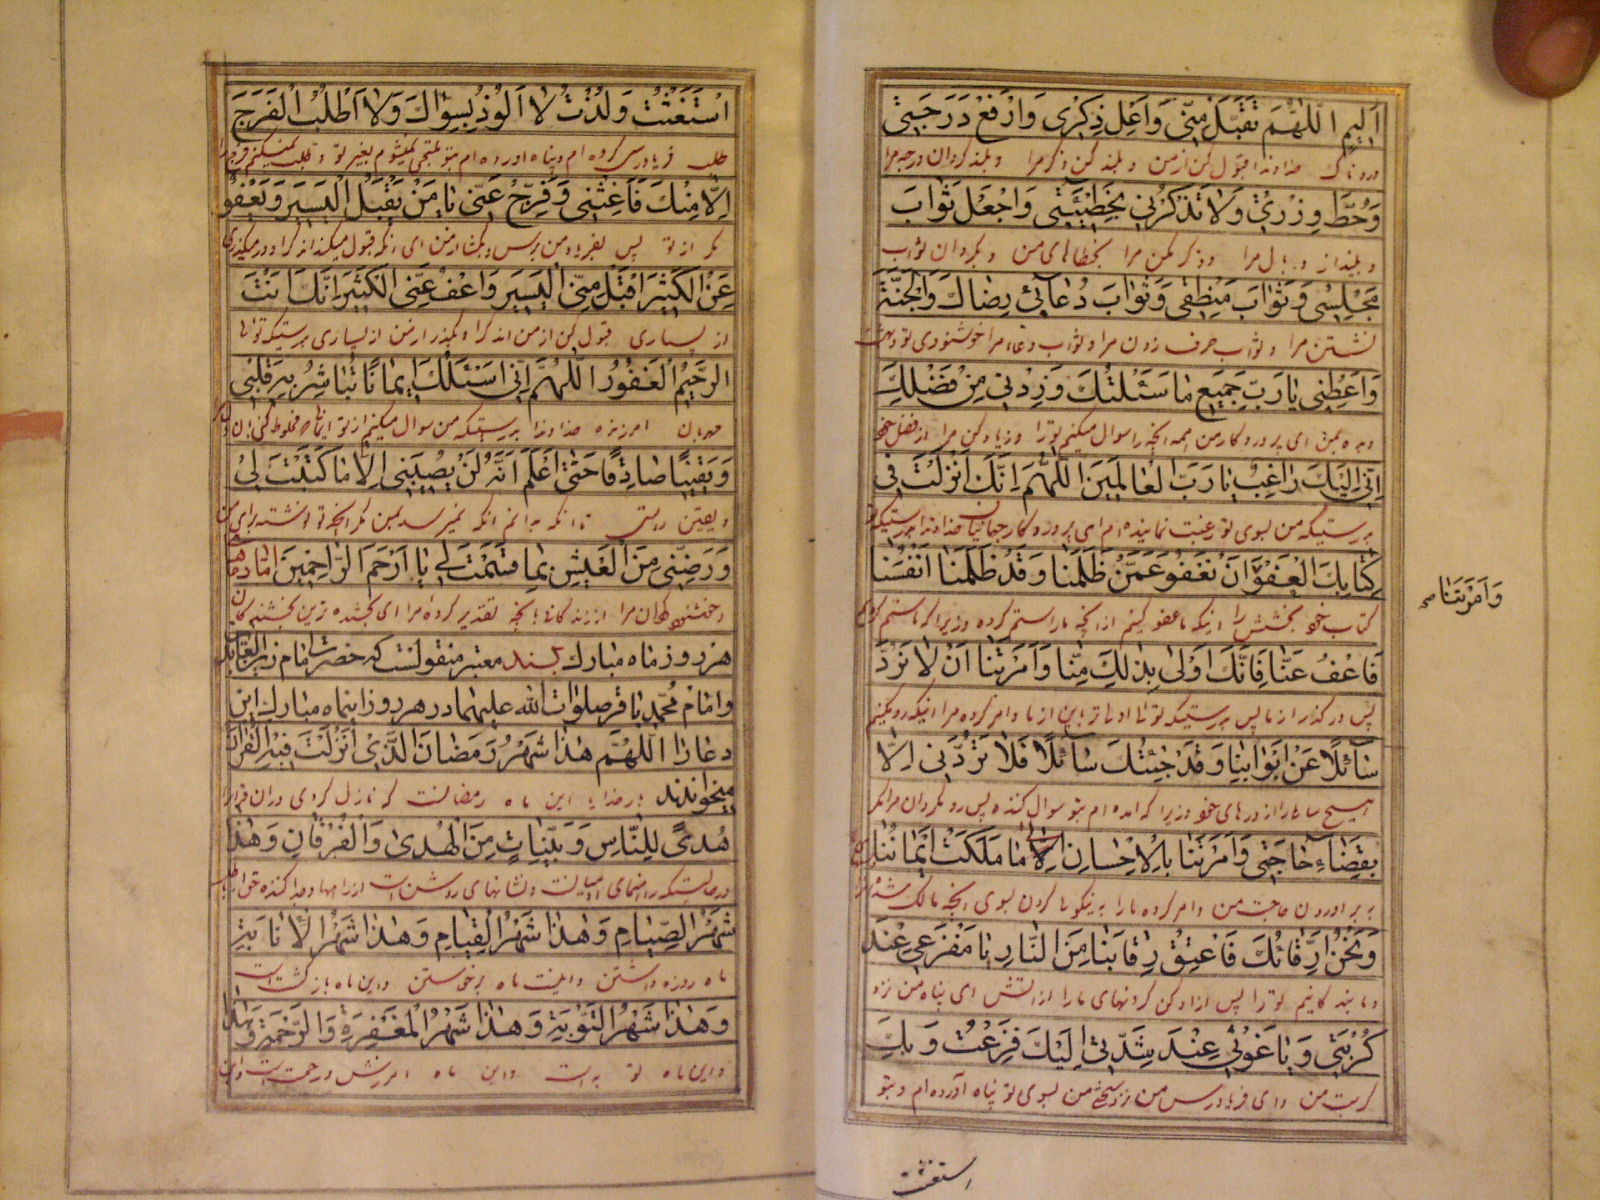 اَليمِ اَللّٰهُمَّ تَقَبَّلْ مِنّي وَاَعْلِ ذِكْري وَارْفَعْ دَرَجَتي
دردناک خداوندا قبول کن از من و بلند کن ذکر مرا و بلند گردان درجه مرا
وَحُطَّ وِزْري وَلا تَذْكُرْني بِخَطيئَتي وَاجْعَلْ ثَوابَ
و بینداز وبال مرا و ذکر مکن مرا بخطاهای من و بگردان ثواب
مَجْلِسي وَثَوابَ مَنْطِقي وَثَوابَ دُعائي رِضاكَ وَالْجَنَّةَ
نشستن مرا و ثواب حرف زدن مرا و ثواب دعاء مرا خوشنودی تو و بهشت
وَاَعْطِني يا رَبِّ جَميعَ ما سَئَلْتُكَ وَزِدْني مِنْ فَضْلِكَ
و بده بمن ای پروردگار من همه آنچه را سوال میکنم تو را و زیاد کن مرا از فضل خود
اِنّي اِلَيْكَ راغِبٌ يا رَبَّ الْعالَمينَ اَللّٰهُمَّ اِنَّكَ اَنْزَلْتَ في
بدرستیکه من بسوی تو رغبت نماینده ام ای پروردگار جهانیان خداوندا بدرستیکه تو
كِتابِكَ الْعَفْوَ اَنْ نَعْفُوَ عَمَّنْ ظَلَمَنا وَقَدْ ظَلَمْنا اَنْفُسَنا
کتاب خود بخشش را اینکه ما عفو کنیم از آنچه ما را ستم کرده و زیرا که ما ستم کردیم
وَاَمَرْتَنا صح
فَاعْفُ عَنّا فَاِنَّكَ اَوْلى بِذلِكَ مِنّا وَاَمَرْتَنا اَنْ لا نَرُدَّ
پس در گذر از ما پس بدرستیکه تو اولی تر باین از ما و امر کرده مرا اینکه رد نکنیم
سآئِلاً عَنْ اَبْوابِنا وَقَدْ جِئْتُكَ سآئِلاً فَلا تَرُدَّني اِلاّ
هیچ سائل را از درهای خود و زیرا که آمده ام بتو سوال کننده پس رد مگردان مرا مگر
بِقَضاءِ حاجَتي وَاَمَرْتَنا بِالْاِحْسانِ اِلى ما مَلَكَتْ اَيْمانُنا
بر آوردن حاجت من و امر کرده ما را به نیکوئی کردن بسوی آنچه مالک شد
وَنَحْنُ اَرِقّائُكَ فَاَعْتِقْ رِقابَنا مِنَ النّارِ يا مَفْزَعي عِنْدَ
و ما بندگانیم تو را پس ازاد کن گردنهای ما را از آتش ای پناه من نزد
كُرْبَتي وَيا غَوْثي عِنْدَ شِدَّتي اِلَيْكَ فَزِعْتُ وَبِكَ
کربت من و ای فریادرس من نزد سختی من بسوی تو پناه آورده ام و بتو
استغثت
اسْتَغَثْتُ وَلُذْتُ لا اَلُوذُ بِسِواكَ وَلا اَطْلُبُ الْفَرَجَ
طلب فریادرسی کرده ام و پناه آورده ام بتو ملتجی نمیشوم بغیر تو و طلب نمیکنم فرج را
اِلاّ مِنْكَ فَاَغِثْني وَفَرِّجْ عَنّي يا مَنْ يَقْبَلُ الْيَسيرَ وَيَعْفُو
مگر از تو پس بفریاد من برس و بگشا از من ای آنکه قبول میکند اندک را و در میگذری
عَنِ الْكَثيرِ اِقْبَلْ مِنّي الْيَسيرَ وَاعْفُ عَنّي الْكَثيرَ اِنَّكَ اَنْتَ
از بسیاری قبول کن از من اندک را و بگذر از من از بسیاری بدرستیکه توئی
الرَّحيمُ الْغَفُورُ اَللّٰهُمَّ اِنّي اَسْئَلُكَ ايماناً تُباشِرُ بِهِ قَلْبي
مهربان امرزنده خداوندا بدرستیکه من سوال میکنم از تو ایمان مخلوط کنی بان
وَيَقيناً صادِقاً حَتّى اَعْلَمَ اَنَّهُ لَنْ يُصيبَني اِلاّ ما كَتَبْتَ لي
و یقین راستی تا آنکه بدانم آنکه نمیرسد بمن مگر آنچه تو نوشته برای من
وَرَضِّني مِنَ الْعَيْشِ بِما قَسَمْتَ لي يا اَرْحَمَ الرّاحِمينَ اما دعاهای
و خشنود گردان مرا از زندگانی بآنچه تقدیر کرده مرا ای بخشنده ترین بخشندگان
هر روز ماه مبارک بسند معتبر منقولست که حضرت امام زین العابدین
و امام محمد باقر صلوات الله علیهما در هر روز اینماه مبارک این
دعا را اَللّٰهُمَّ هذا شَهْرُ رَمَضانَ الَّذي اَنْزَلْتَ فيهِ الْقُرْآنَ
میخواندند بار خدایا این ماه رمضانست که نازل کردی در ان قرانرا
هُدىً لِلنّاسِ وَبَيِّناتٍ مِنَ الْهُدى وَالْفُرْقانِ وَهذا
در حالتیکه راهنمای ادمیانست و نشانهای روشن است از راهها و جدا کننده حق از باطل
شَهْرُ الصِّيامِ وَهذا شَهْرُ الْقِيامِ وَهذا شَهْرُ الْاِنابَةِ
ماه روزه داشتن و اینست ماه برخواستن و این ماه بازگشت است
وَهذا شَهْرُ التَّوْبَةِ وَهذا شَهْرُ الْمَغْفِرَةِ وَالرَّحْمَةِ وَهذا
و این ماه توبه است و این ماه امرزش و رحمت است و این